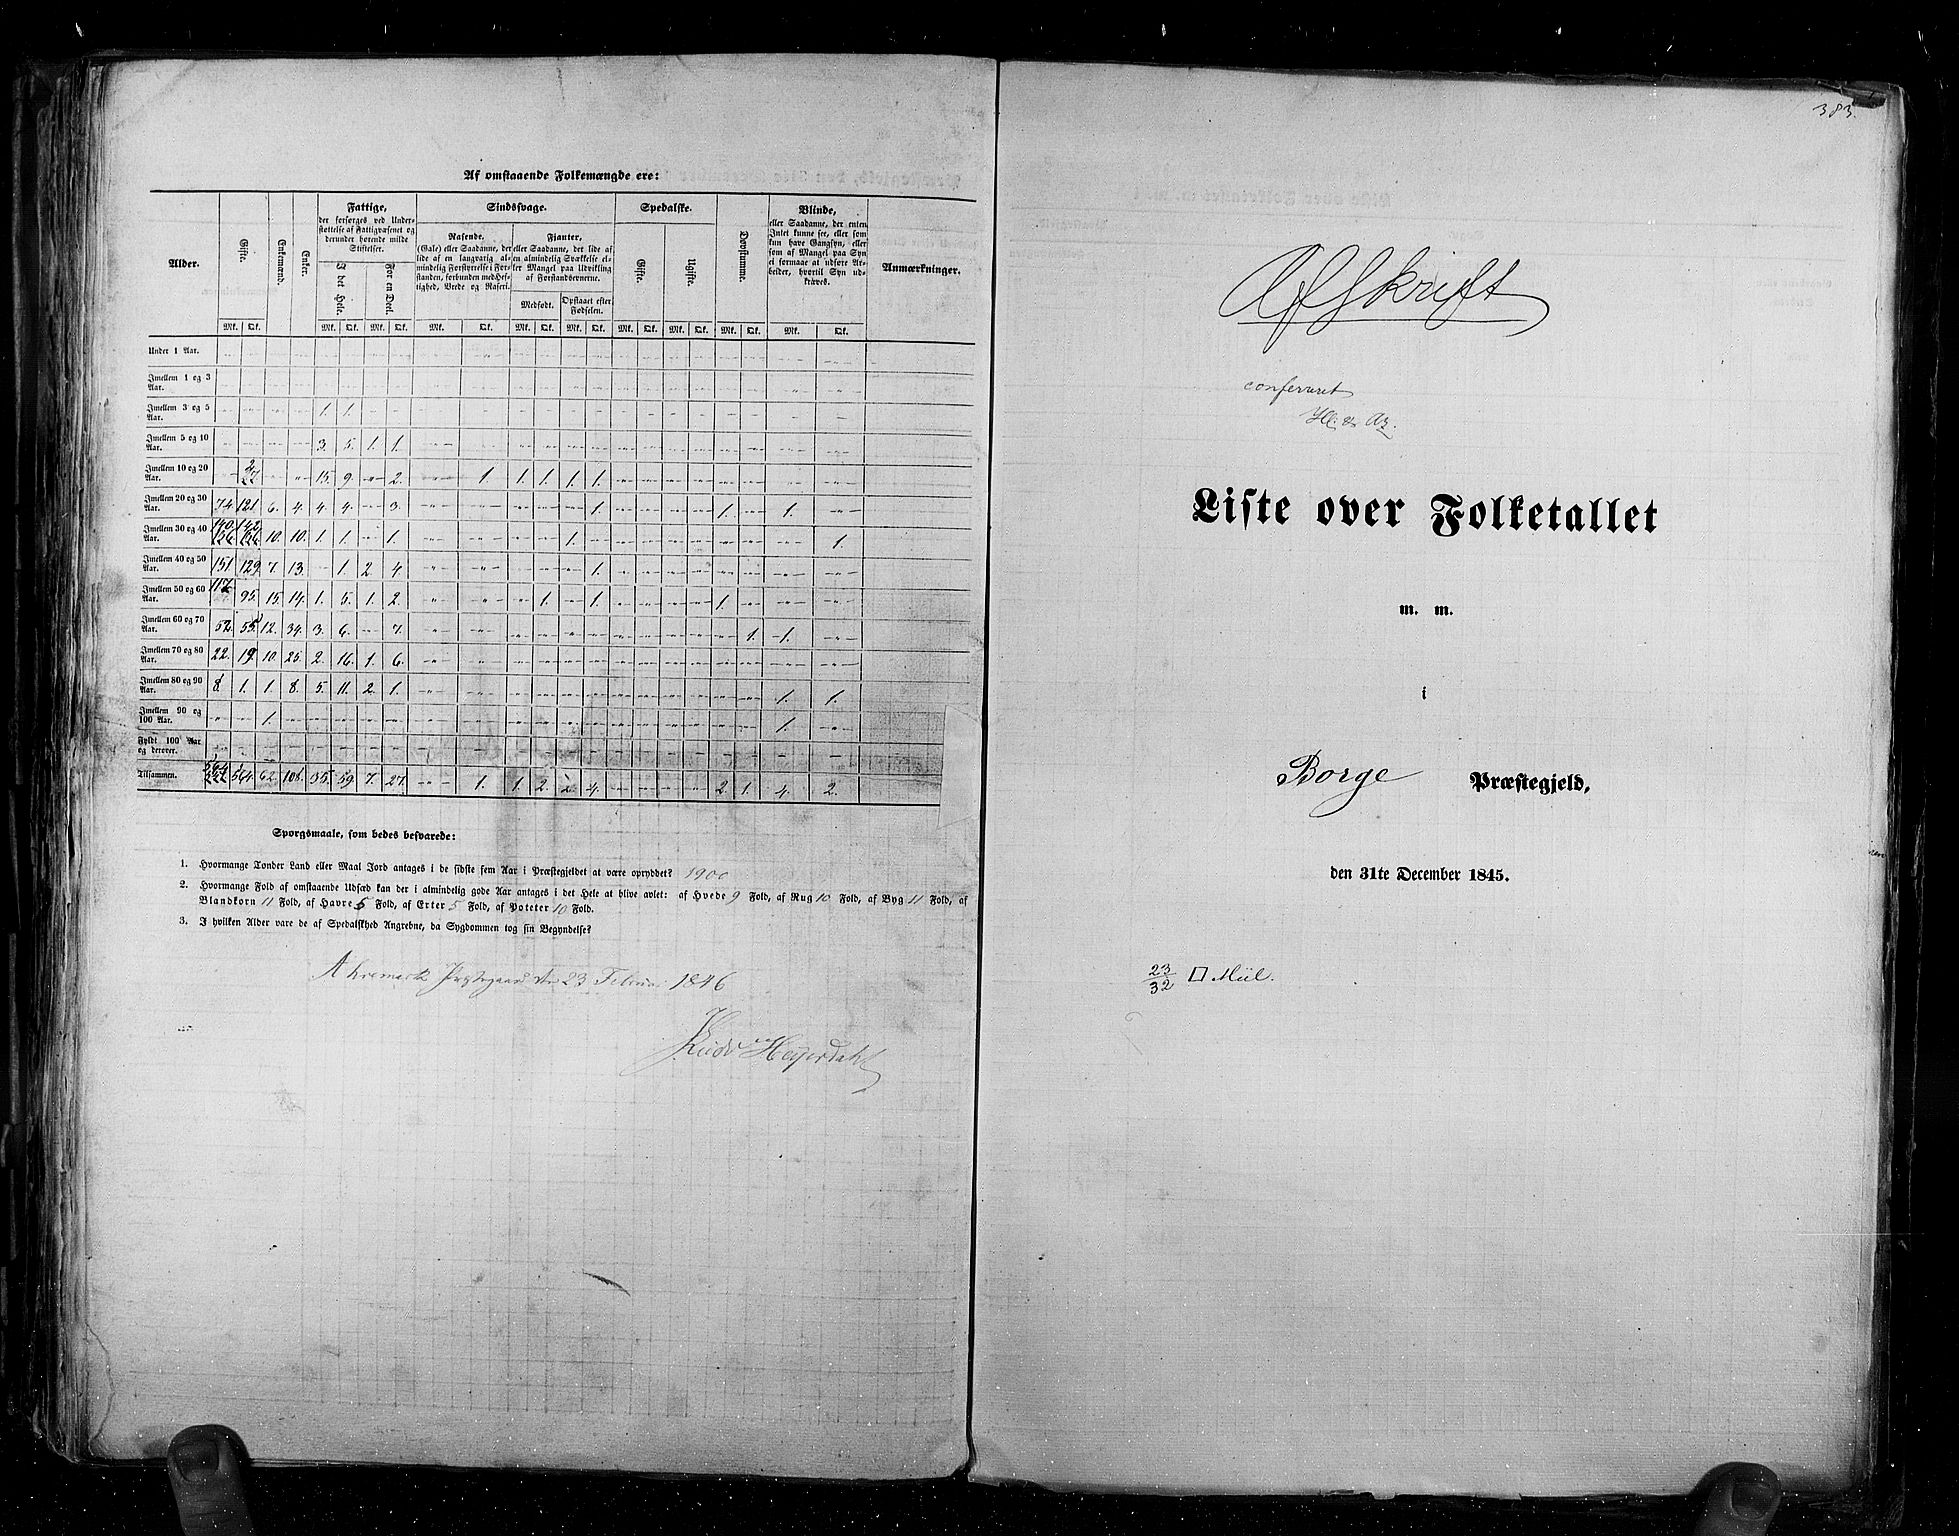 Af omstaaende Folkemængde ere:
Alder. Gifte. Enkemænd. Enker. Fattige, Sindssvage. Spedalske. Døvstumme. Blinde, Anmærkninger.
der forsørges ved Under-
støttelse af Fattigvæsenet og
derunder hørende milde
Stiftelser.
I det Hele. For en Deel.
Rasende.
(Gale) eller Saadanne, der
lide af en langvarig al-
mindelig Forstyrrelse i For-
standen, forbunden med Hef-
tighed, Vrede og Raseri.
Fjanter,
eller Saadanne, der lide af
en almindelig Svækkelse el-
ler Mangel paa Udvikling
af Forstandsevnerne.
Medfødt. Opstaaet efter Fødselen.
Gifte. Ugifte.
eller Saadanne, der enten
Intet kunne see, eller som
kun have Gangsyn, eller
som af Mangel paa Syn
ei formaae at udføre Ar-
beider, hvortil Syn ud-
kræves.
Mk. Qk. Mk. Qk. Mk. Qk. Mk. Qk. Mk. Qk. Mk. Qk. Mk. Qk. Mk. Qk. Mk. Qk. Mk. Qk.
Under 1 Aar.
Imellem 1 og 3 Aar.
Imellem 3 og 5 Aar. 1. 1.
Imellem 5 og 10 Aar. 3. 5. 1. 1.
Imellem 10 og 20 Aar. 2 15. 9. 2. 1. 1. 1. 1. 1.
Imellem 20 og 30 Aar. 74 121 6. 4. 4. 4. 3. 1. 1. 1.
Imellem 30 og 40 Aar. 140 142 10. 10. 1. 1. 1. 1. 1.
Imellem 40 og 50 Aar. 151 129 7. 13. 1. 2 4 1.
Imellem 50 og 60 Aar. 117 95. 15. 14. 1. 5. 1. 2. 1. 1. 1.
Imellem 60 og 70 Aar. 52. 55. 12. 34. 3. 6. 7. 1. 1.
Imellem 70 og 80 Aar. 22. 19. 10. 25. 2. 16. 1. 6.
Imellem 80 og 90 Aar. 8. 1. 1. 8. 5. 11. 2. 1. 1. 1.
Imellem 90 og 100 Aar. 1. 1.
Fyldt 100 Aar og derover.
Tilsammen. 564 564. 62. 108. 35. 59. 7. 27. 1. 1. 2. 2. 4. 2. 1. 4. 2.
Spørgsmaale, som bedes besvarede:
1. Hvormange Tønder Land eller Maal Jord antages i de sidste fem Aar i Præstegjeldet at være opryddet? 1900
2. Hvormange Fold af omstaaende Udsæd kan der i almindelig gode Aar antages i det Hele at blive avlet: af Hvede 9 Fold, af Rug 10 Fold, af Byg 11 Fold, af
Blandkorn 11 Fold, af Havre 5 Fold, af Erter 5 Fold, af Poteter 10 Fold.
3. I hvilken Alder vare de af Spedalskhed Angrebne, da Sygdommen tog sin Begyndelse?
Ahremark Præstegaard den 23 Februar 1846
Heyerdahl
383.
Afskrift
confereret
Liste over Folketallet
m. m.
i
Borge Præstegjeld,
den 31te December 1845.
23/32 □ Miil.